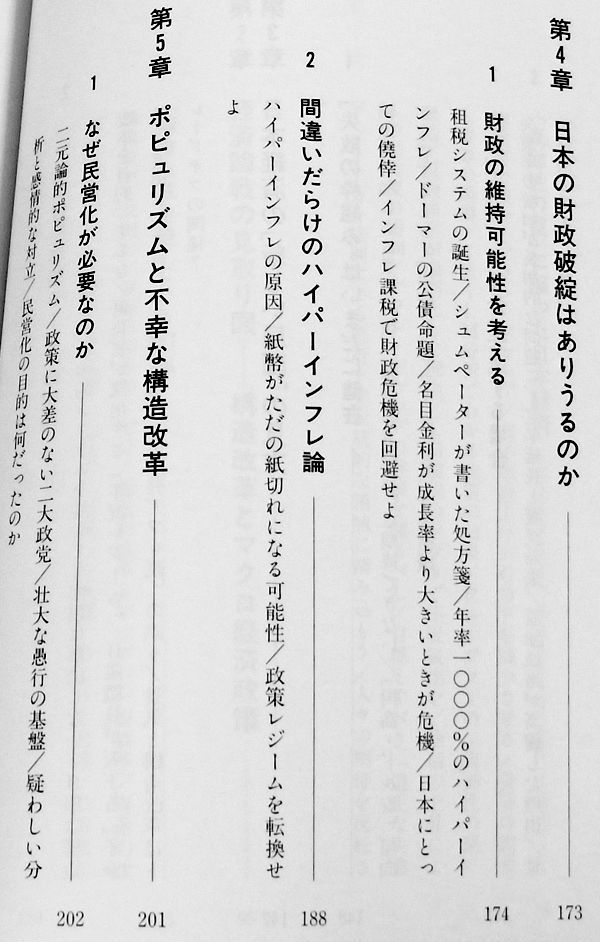 第4章 日本の財政破綻はありうるのか 173
1 財政の維持可能性を考える 174
租税システムの誕生/シュムペーターが書いた処方箋/年率一〇〇〇%のハイパーイ
ンフレ/ドーマーの公債命題/名目金利が成長率より大きいときが危機/日本にとっ
ての僥倖/インフレ課税で財政危機を回避せよ
2 間違いだらけのハイパーインフレ論 188
ハイパーインフレの原因/紙幣がただの紙切れになる可能性/政策レジームを転換せ
よ
第5章 ポピュリズムと不幸な構造改革 201
1 なぜ民営化が必要なのか 202
二元論的ポピュリズム/政策に大差のない二大政党/壮大な愚行の基盤/疑わしい分
析と感情的な対立/民営化の目的は何だったのか